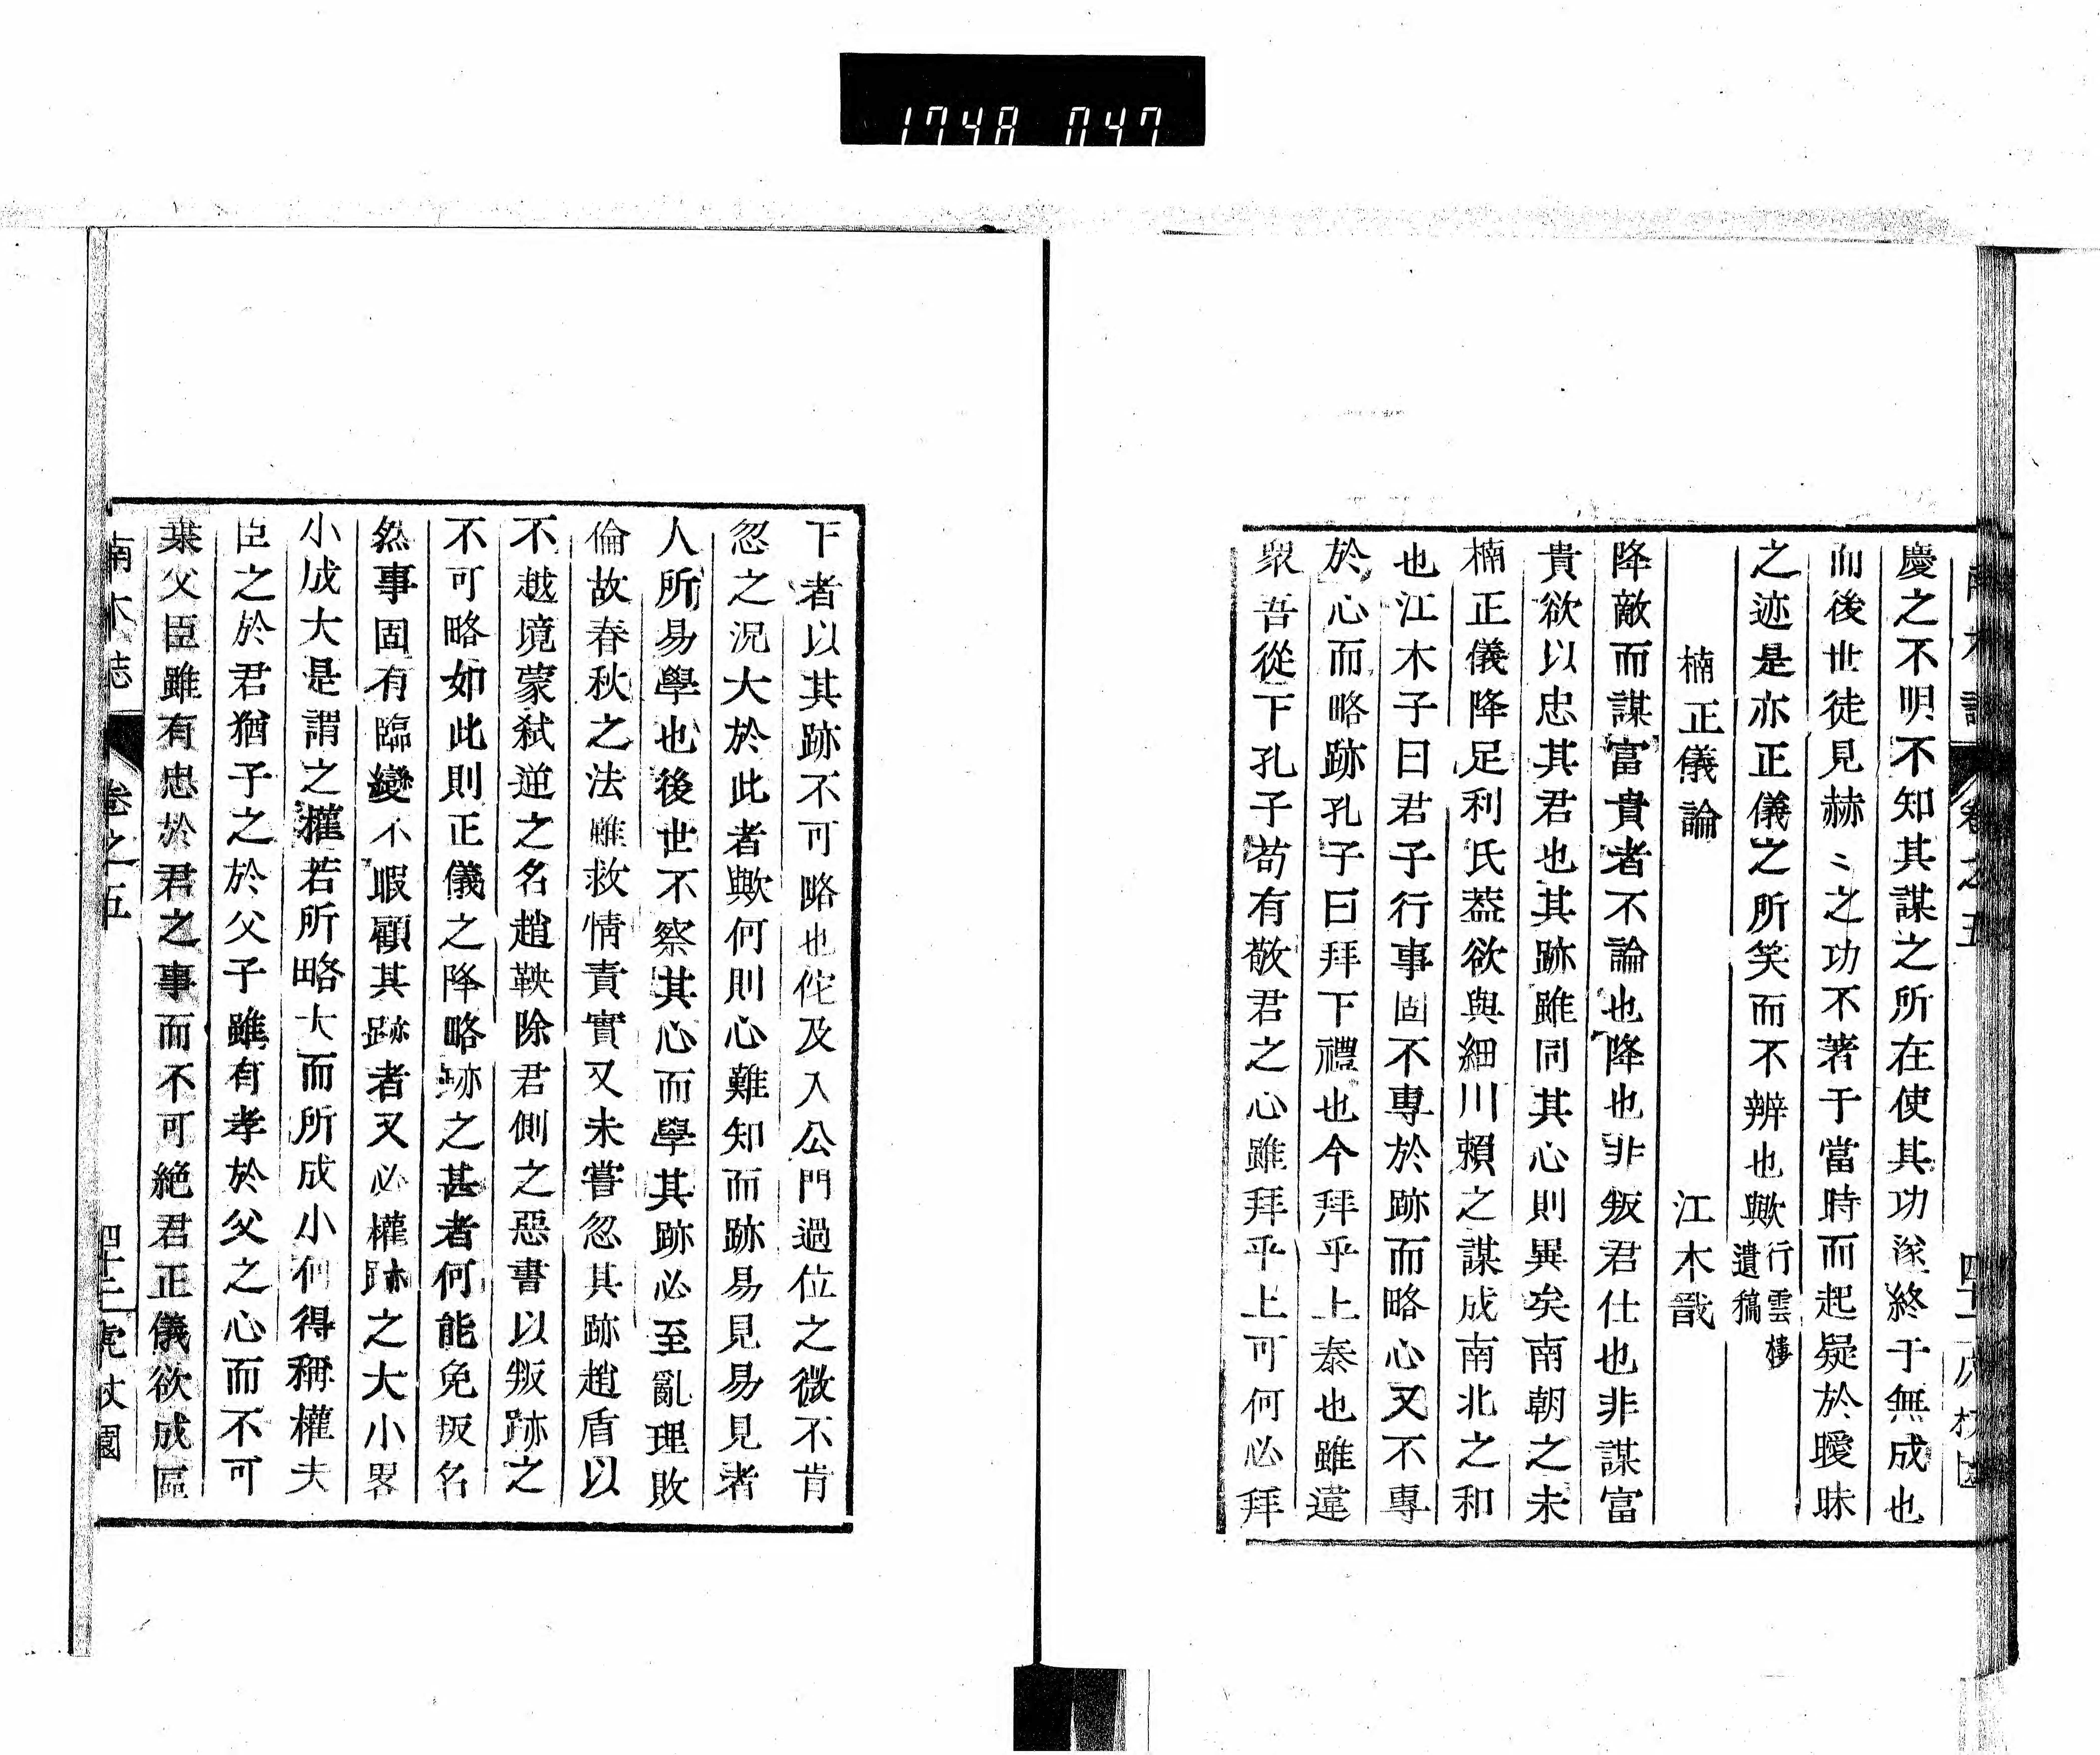 1748 047
慶之不明不知其謀之所在使其功遂終于無成也
而後世徒見赫〻之功不著于當時而起疑於曖昧
之迹是亦正儀之所笑而不辨也歟行雲棲遺稿
楠正儀論 江木戩
降敵而謀富貴者不論也降也非叛君仕也非謀富
貴欲以忠其君也其跡雖同其心則異矣南朝之未
楠正儀降足利氏葢欲與細川賴之謀成南北之和
也江木子曰君子行事固不專於跡而略心又不專
於心而略跡孔子曰拜下禮也今拜乎上泰也雖違
衆吾從下孔子苟有敬君之心雖拜乎上可何必拜
下者以其跡不可略也佗及入公門過位之微不肯
忽之況大於此者歟何則心難知而跡易見易見者
人所易學也後世不察其心而學其跡必至亂理敗
倫故春秋之法雖救情責實又未嘗忽其跡趙盾以
不越境蒙弑逆之名趙鞅除君側之惡書以叛跡之
不可略如此則正儀之降略跡之甚者何能免叛名
然事固有臨變不暇顧其跡者又必權跡之大小畧
小成大是謂之權若所略大而所成小何得稱權夫
臣之於君猶子之於父子雖有孝於父之心而不可
棄父臣雖有忠於君之事而不可絶君正儀欲成區
南木誌 卷之五 四十二 虎杖園